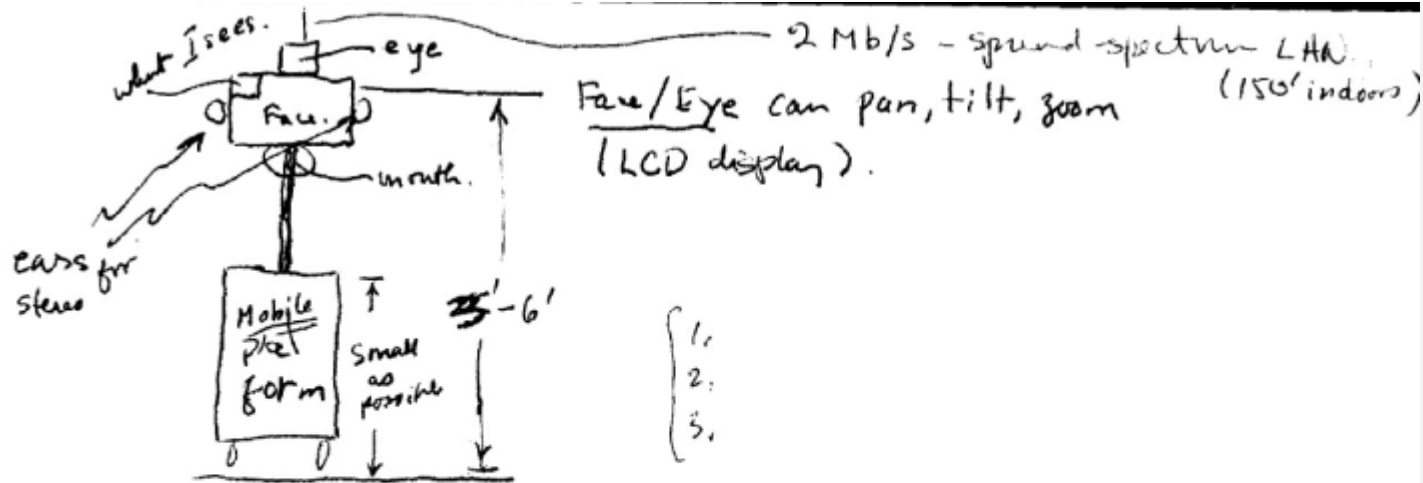 what I sees.
eye
2 Mb/s - spread-spectrum LAN
(150' indoors)
Face.
Face/Eye can pan, tilt, zoom
(LCD display).
mouth.
ears for
stereo
Mobile
plat
form
small
as
possible
5'-6'
1.
2.
3.